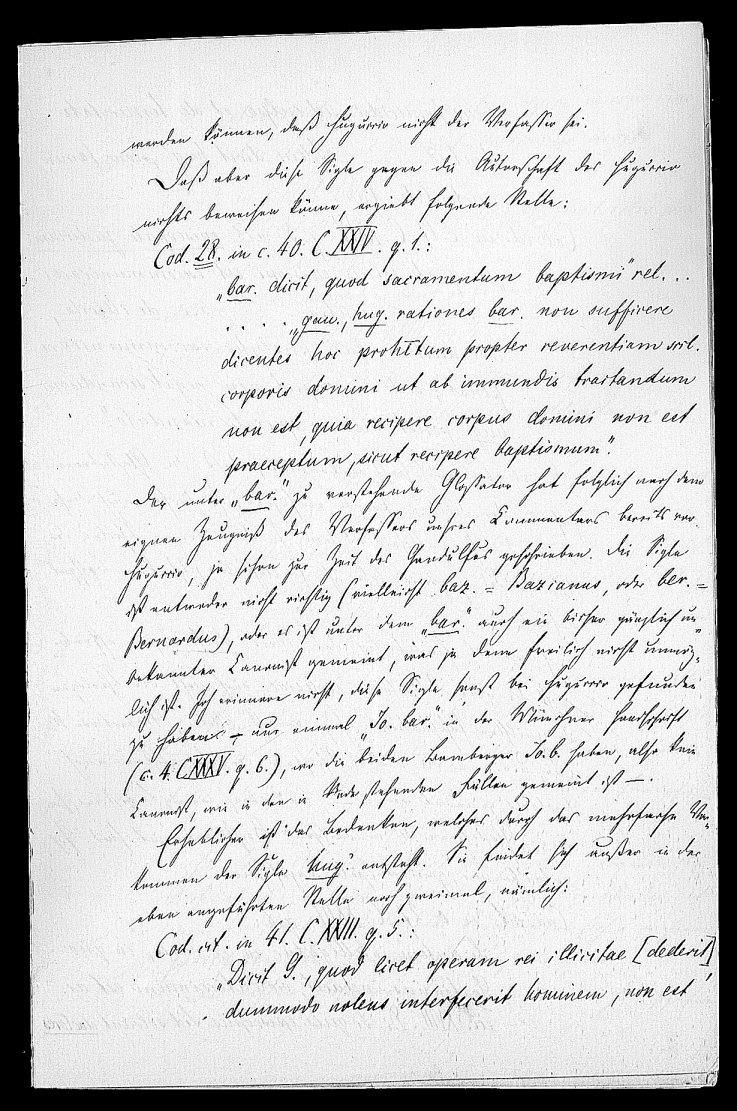 werden können, daß Huguccio nicht der Verfasser sei.
Daß aber diese Sigle gegen die Autorschaft des Huguccio
nichts beweisen könne, ergiebt folgende Stelle:
Cod. 28. in c. 40. C. XXIV. q. 1.:
„bar. dicit, quod sacramentum baptismi" rel. . .
. . . . „gan., hug. rationes bar. non sufficere
dicentes hoc prohitum propter reverentiam scil.
corporis domini ut ab immundis tractandum
non est, quia recipere corpus domini non est
praeceptum, sicut recipere baptismum".
Der unter „bar." zu verstehende Glossator hat folglich nach dem
eignen Zeugniß des Verfassers unsres Commentars bereits vor
Huguccio, ja schon zur Zeit des Gandulfus geschrieben. Die Sigle
ist entweder nicht richtig (vielleicht baz. = Bazianus, oder ber. =
Bernardus), oder es ist unter dem „bar." auch ein bisher gänzlich un-
bekannter Canonist gemeint, was ja denn freilich nicht unmög-
lich ist. Ich erinnere nicht, diese Sigle sonst bei Huguccio gefunden
zu haben – nur einmal „Io. bar." in der Münchner Handschrift
(c. 4. C. XXXV. q. 6.), wo die beiden Bamberger Io. b. haben, also kein
Canonist, wie in den in Rede stehenden Fällen gemeint ist –.
Erheblicher ist das Bedenken, welches durch das mehrfache Vor-
kommen der Sigle hug. entsteht. Sie findet sich außer in der
eben angeführten Stelle noch zweimal, nämlich:
Cod. cit. in 41. C. XXIII. q. 5.:
„Dicit G., quod licet operam rei illicitae [dederit],
dummodo nolens interfecerit hominem, non est